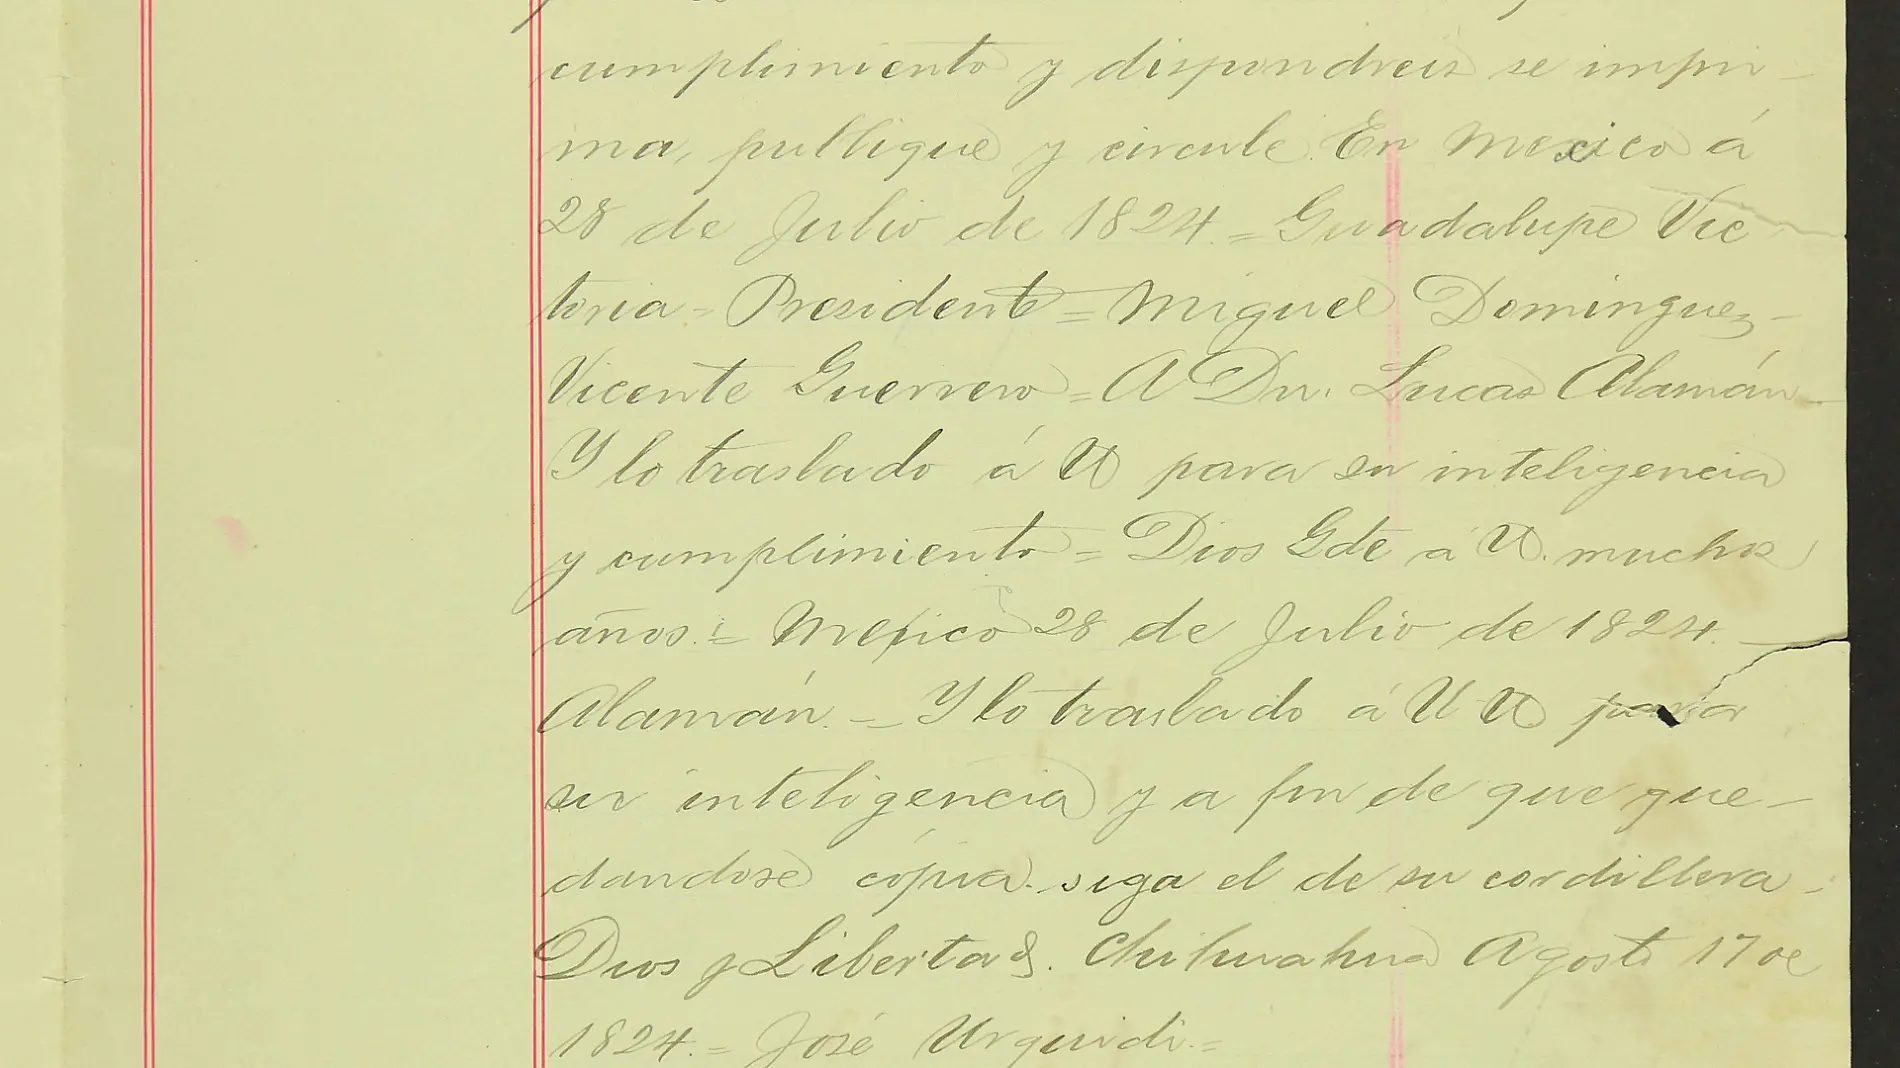 cumplimiento y dispondreis se impri-
ma, publique y circule. En Mexico á
28 de Julio de 1824. = Guadalupe Vic
toria = Presidente = Miguel Dominguez -
Vicente Guerrero = A Dn. Lucas Alamán -
Y lo traslado á U para su inteligencia
y cumplimiento = Dios Gde a U. muchos
años. = Mexico 28 de Julio de 1824. -
Alamán. = Y lo traslado á U U para
su inteligencia y a fin de que que-
dandose cópia. siga el de su cordillera -
Dios y Libertad. Chihuahua Agosto 17 de
1824. = José Urquidi. =